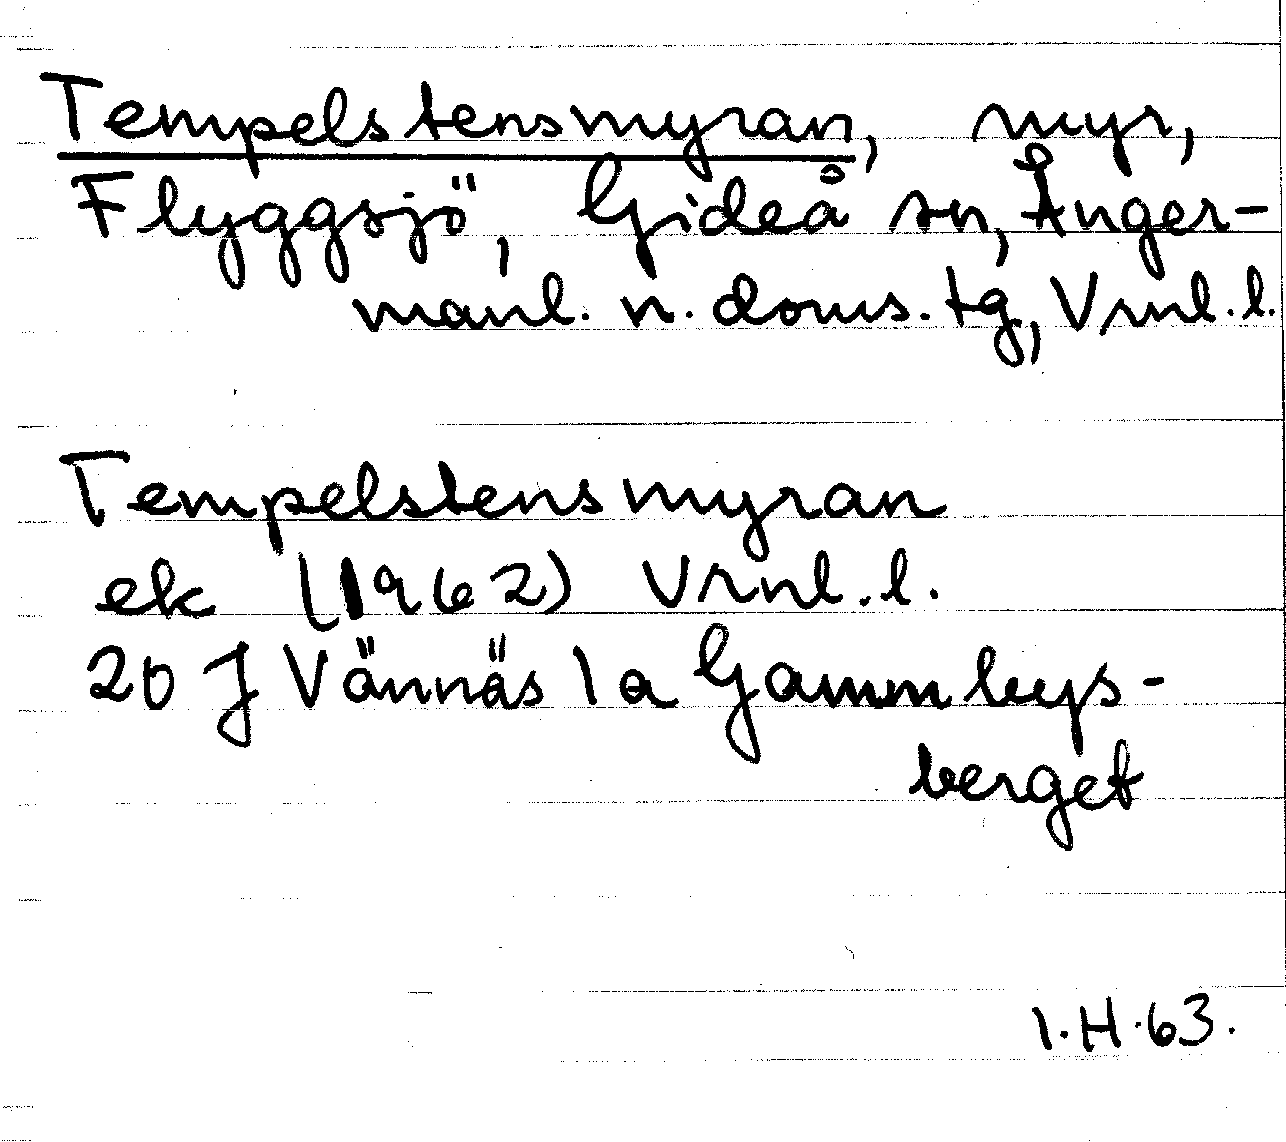 Tempelstensmyran, myr,
Flyggsjö, Gideå sn, Ånger-
manl. n. doms. tg, Vrnl. l.
Tempelstensmyran
ek (1962) Vrnl. l.
20 J Vännäs 1a Gammbys-
berget
I. H. 63.